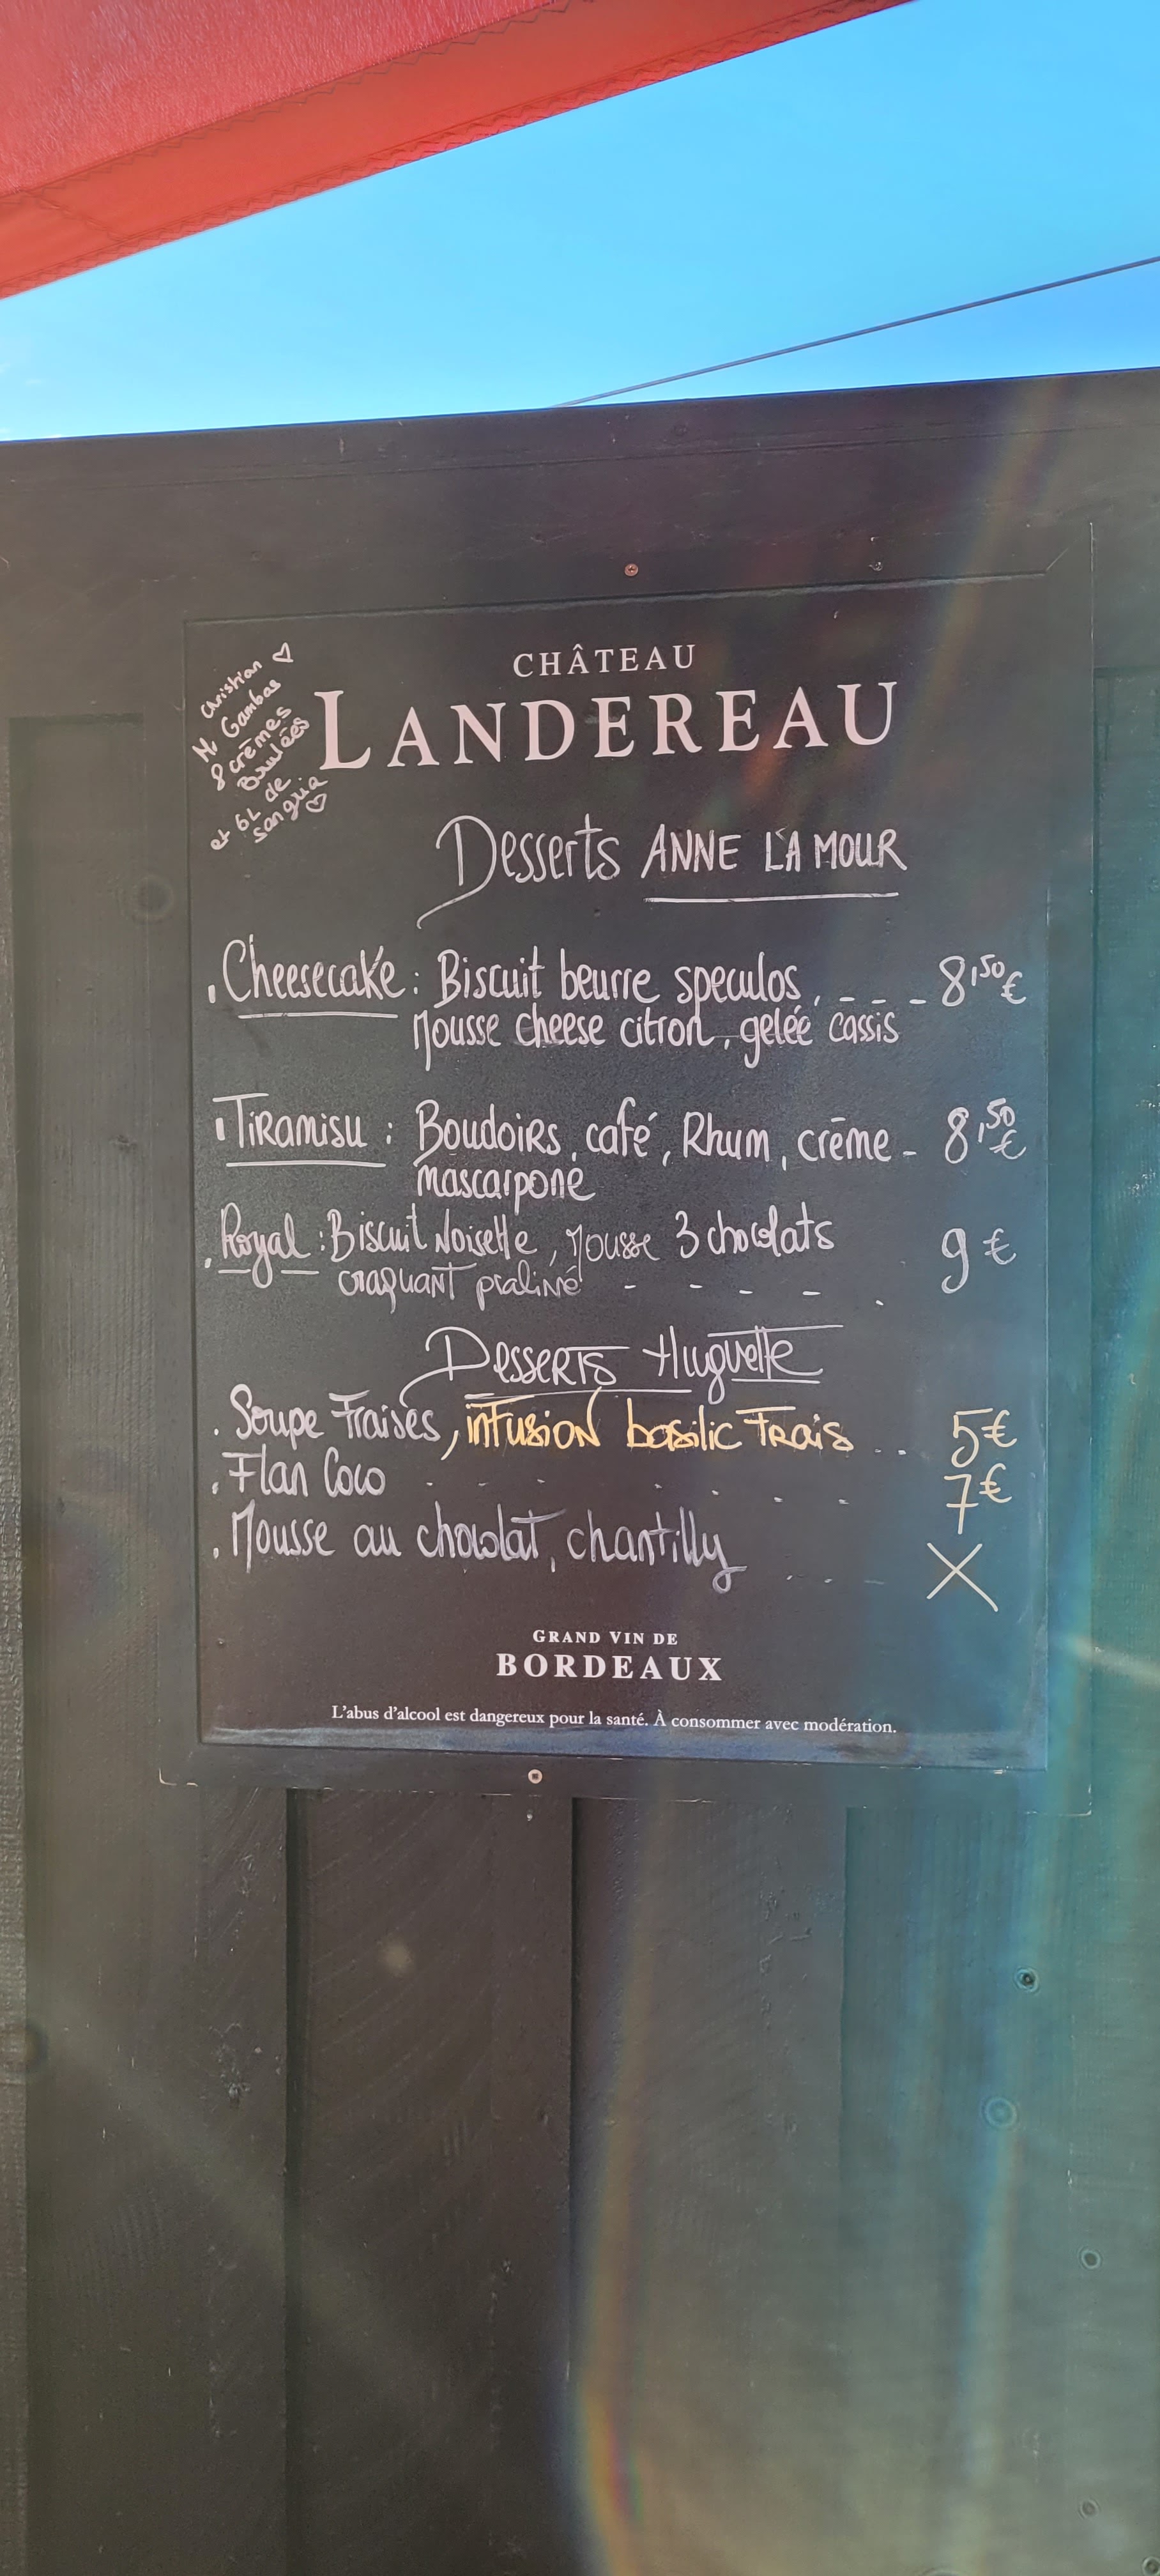 Christian ♡
M. Gambas
8 crèmes
Brulées
et 6L de
sangria ♡
CHÂTEAU
LANDEREAU
Desserts ANNE L'A MOUR
. Cheesecake : Biscuit beurre speculos, - - - 8,50€
Mousse cheese citron, gelée cassis
. Tiramisu : Boudoirs, café, Rhum, crème - 8,50€
mascarpone
. Royal : Biscuit Noisette, Mousse 3 chocolats 9€
craquant praliné - - - - .
Desserts Huguette
. Soupe Fraises, infusion basilic Frais . . . 5€
. Flan Coco - - - - - - 7€
. Mousse au chocolat, chantilly - - - X
GRAND VIN DE
BORDEAUX
L'abus d'alcool est dangereux pour la santé. À consommer avec modération.